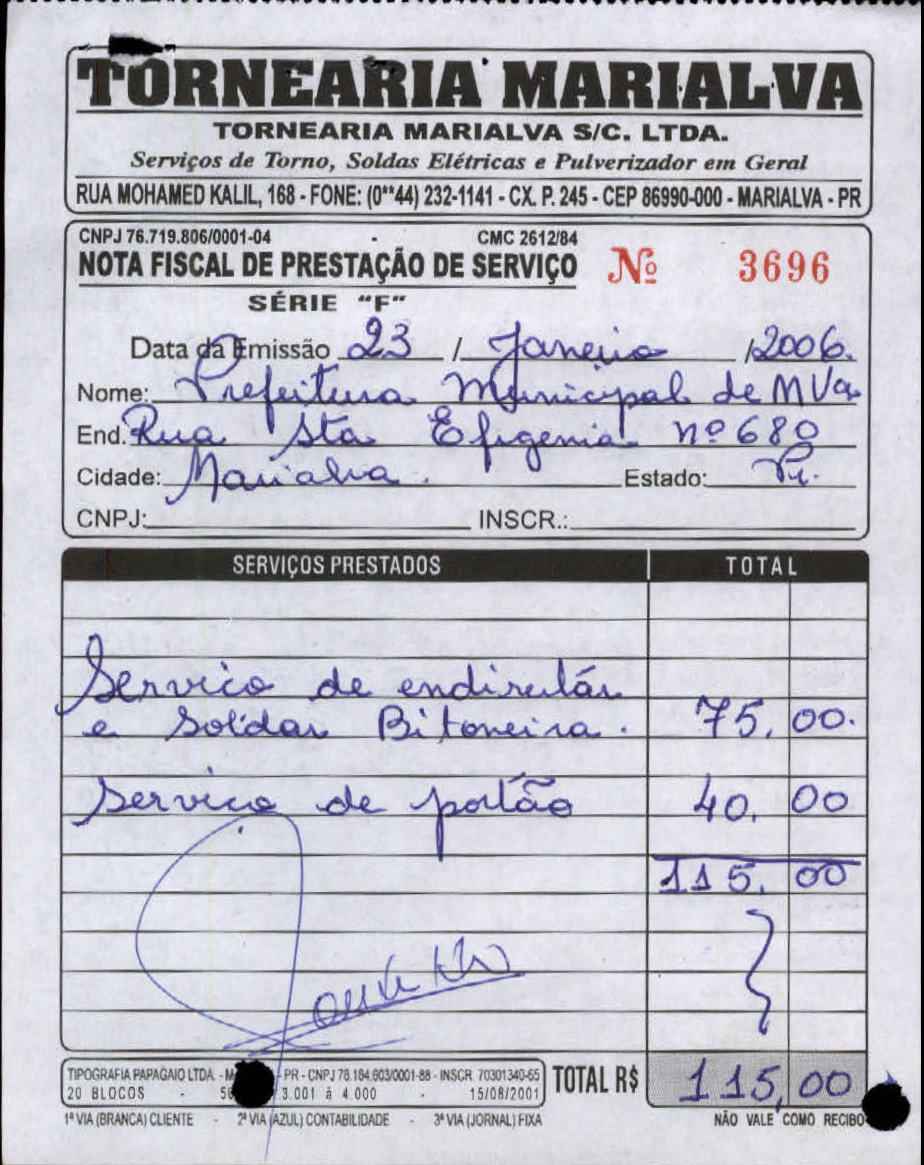 TORNEARIA MARIALVA
TORNEARIA MARIALVA S/C. LTDA.
Serviços de Torno, Soldas Elétricas e Pulverizador em Geral
RUA MOHAMED KALIL, 168 - FONE: (0**44) 232-1141 - CX. P. 245 - CEP 86990-000 - MARIALVA - PR
CNPJ 76.719.806/0001-04 - CMC 2612/84
NOTA FISCAL DE PRESTAÇÃO DE SERVIÇO Nº 3696
SÉRIE "F"
Data da Emissão 23 / Janeiro /2006.
Nome: Prefeitura Municipal de MVa
End. Rua Sta Efigenia nº 680
Cidade: Marialva. Estado: Pr.
CNPJ: INSCR.:
SERVIÇOS PRESTADOS TOTAL
Servico de endireitár
e Soldar Bitoneira. 75,00.
Servico de portão 40,00
115,00
TIPOGRAFIA PAPAGAIO LTDA. - PR - CNPJ 78.184.603/0001-88 - INSCR. 70301340-65
20 BLOCOS - 3.001 à 4.000 - 15/08/2001
TOTAL R$ 115,00
1ª VIA (BRANCA) CLIENTE - 2ª VIA (AZUL) CONTABILIDADE - 3ª VIA (JORNAL) FIXA NÃO VALE COMO RECIBO